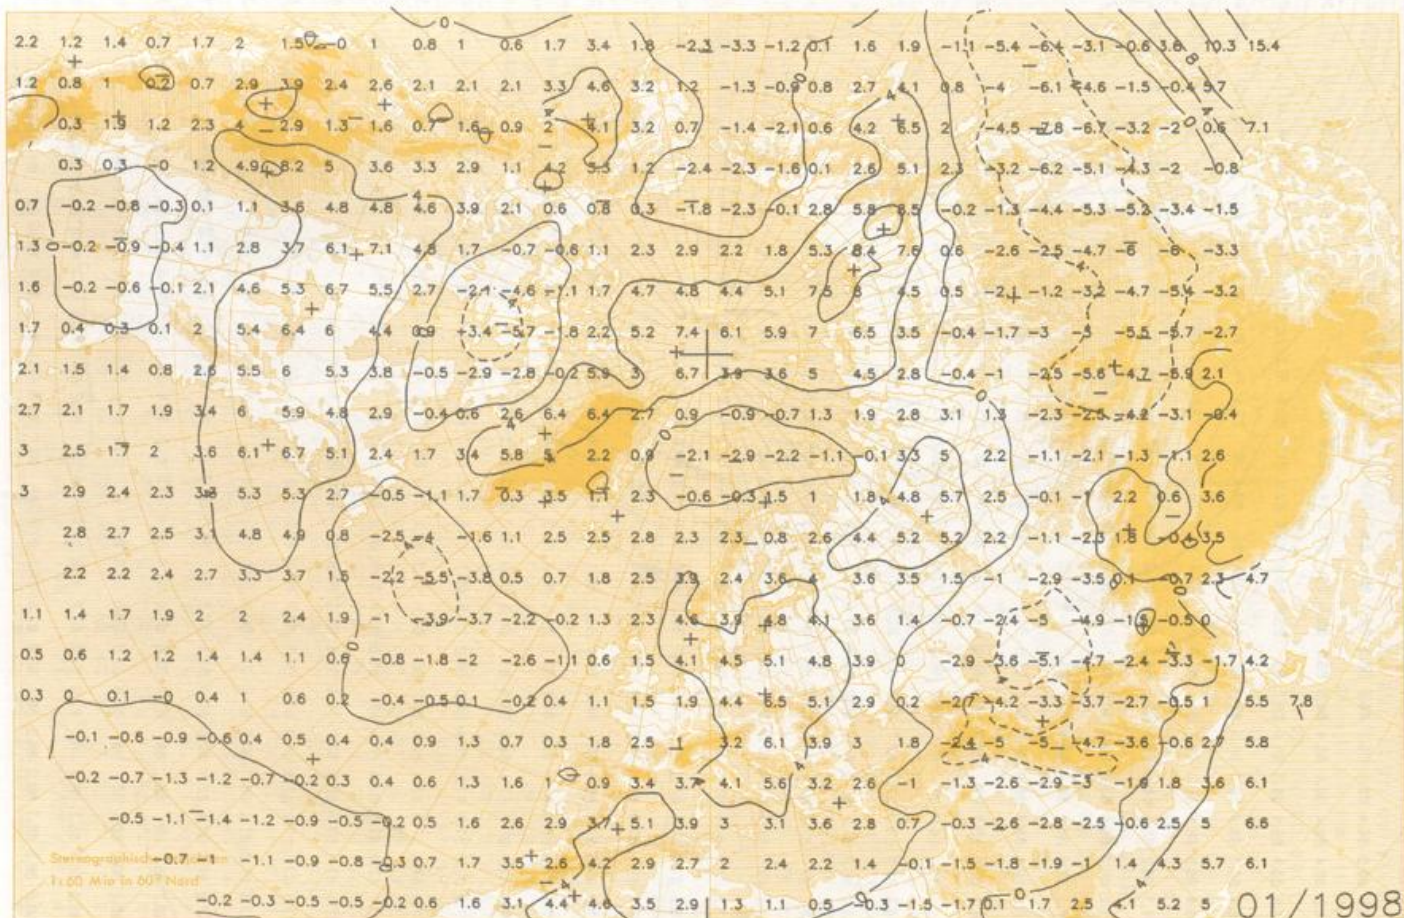 0
2.2 1.2 1.4 0.7 1.7 2 1.5 -0 1 0.8 1 0.6 1.7 3.4 1.8 -2.3 -3.3 -1.2 0.1 1.6 1.9 -1.1 -5.4 -6.4 -3.1 -0.6 3.6 10.3 15.4
1.2 0.8 1 0.2 0.7 2.9 3.9 2.4 2.6 2.1 2.1 2.1 3.3 4.6 3.2 1.2 -1.3 -0.9 0.8 2.7 4.1 0.8 -4 -6.1 -4.6 -1.5 -0.4 5.7
0.3 1.9 1.2 2.3 4 2.9 1.3 1.6 0.7 1.6 0.9 2 4.1 3.2 0.7 -1.4 -2.1 0.6 4.2 6.5 2 -4.5 -7.8 -6.7 -3.2 -2 0.6 7.1
0.3 0.3 -0 1.2 4.9 8.2 5 3.6 3.3 2.9 1.1 4.2 5.3 1.2 -2.4 -2.3 -1.6 0.1 2.6 5.1 2.3 -3.2 -6.2 -5.1 -4.3 -2 -0.8
0.7 -0.2 -0.8 -0.3 0.1 1.1 3.6 4.8 4.8 4.6 3.9 2.1 0.6 0.8 0.3 -1.8 -2.3 -0.1 2.8 5.8 8.5 -0.2 -1.3 -4.4 -5.3 -5.2 -3.4 -1.5
1.3 -0.2 -0.9 -0.4 1.1 2.8 3.7 6.1 7.1 4.8 1.7 -0.7 -0.6 1.1 2.3 2.9 2.2 1.8 5.3 8.4 7.6 0.6 -2.6 -2.5 -4.7 -6 -6 -3.3
1.6 -0.2 -0.6 -0.1 2.1 4.6 5.3 6.7 5.5 2.7 -2.1 -4.6 -1.1 1.7 4.7 4.8 4.4 5.1 7.5 8 4.5 0.5 -2.1 -1.2 -3.2 -4.7 -5.4 -3.2
1.7 0.4 0.3 0.1 2 5.4 6.4 6 4.4 0.9 -3.4 -5.7 -1.8 2.2 5.2 7.4 6.1 5.9 7 6.5 3.5 -0.4 -1.7 -3 -5 -5.5 -5.7 -2.7
2.1 1.5 1.4 0.8 2.6 5.5 6 5.3 3.8 -0.5 -2.9 -2.8 -0.2 5.9 3 6.7 3.9 3.6 5 4.5 2.8 -0.4 -1 -2.5 -5.6 -4.7 -5.9 2.1
2.7 2.1 1.7 1.9 3.4 6 5.9 4.8 2.9 -0.4 0.6 2.6 6.4 6.4 2.7 0.9 -0.9 -0.7 1.3 1.9 2.8 3.1 1.3 -2.3 -2.5 -4.2 -3.1 -0.4
3 2.5 1.7 2 3.6 6.1 6.7 5.1 2.4 1.7 3.4 5.8 5 2.2 0.9 -2.1 -2.9 -2.2 -1.1 -0.1 3.3 5 2.2 -1.1 -2.1 -1.3 -1.1 2.6
3 2.9 2.4 2.3 3.8 5.3 5.3 2.7 -0.5 -1.1 1.7 0.3 3.5 1.1 2.3 -0.6 -0.3 1.5 1 1.8 4.8 5.7 2.5 -0.1 -1 2.2 0.6 3.6
2.8 2.7 2.5 3.1 4.8 4.9 0.8 -2.5 -4 -1.6 1.1 2.5 2.5 2.8 2.3 2.3 0.8 2.6 4.4 5.2 5.2 2.2 -1.1 -2.3 1.8 -0.4 3.5
2.2 2.2 2.4 2.7 3.3 3.7 1.5 -2.2 -5.5 -3.8 0.5 0.7 1.8 2.5 3.9 2.4 3.6 4 3.6 3.5 1.5 -1 -2.9 -3.5 0.1 -0.7 2.3 4.7
1.1 1.4 1.7 1.9 2 2 2.4 1.9 -1 -3.9 -3.7 -2.2 -0.2 1.3 2.3 4.6 3.9 4.8 4.1 3.6 1.4 -0.7 -2.4 -5 -4.9 -1.5 -0.5 0
0.5 0.6 1.2 1.2 1.4 1.4 1.1 0.6 -0.8 -1.8 -2 -2.6 -1.1 0.6 1.5 4.1 4.5 5.1 4.8 3.9 0 -2.9 -3.6 -5.1 -4.7 -2.4 -3.3 -1.7 4.2
0.3 0 0.1 -0 0.4 1 0.6 0.2 -0.4 -0.5 0.1 -0.2 0.4 1.1 1.5 1.9 4.4 6.5 5.1 2.9 0.2 -2.7 -4.2 -3.3 -3.7 -2.7 -0.5 1 5.5 7.8
-0.1 -0.6 -0.9 -0.6 0.4 0.5 0.4 0.4 0.9 1.3 0.7 0.3 1.8 2.5 1 3.2 6.1 3.9 3 1.8 -2.4 -5 -5 -4.7 -3.6 -0.6 2.7 5.8
-0.2 -0.7 -1.3 -1.2 -0.7 -0.2 0.3 0.4 0.6 1.3 1.6 1 0.9 3.4 3.7 4.1 5.6 3.2 2.6 -1 -1.3 -2.6 -2.9 -3 -1.9 1.8 3.6 6.1
-0.5 -1.1 -1.4 -1.2 -0.9 -0.5 -0.2 0.5 1.6 2.6 2.9 3.7 5.1 3.9 3 3.1 3.6 2.8 0.7 -0.3 -2.6 -2.8 -2.5 -0.6 2.5 5 6.6
-0.7 -1 -1.1 -0.9 -0.8 -0.3 0.7 1.7 3.5 2.6 4.2 2.9 2.7 2 2.4 2.2 1.4 -0.1 -1.5 -1.8 -1.9 -1 1.4 4.3 5.7 6.1
Stereographische
1:60 Mio in 60° Nord
-0.2 -0.3 -0.5 -0.5 -0.2 0.6 1.6 3.1 4.4 4.6 3.5 2.9 1.3 1.1 0.5 -0.3 -1.5 -1.7 0.1 1.7 2.5 4.1 5.2 5
01/1998